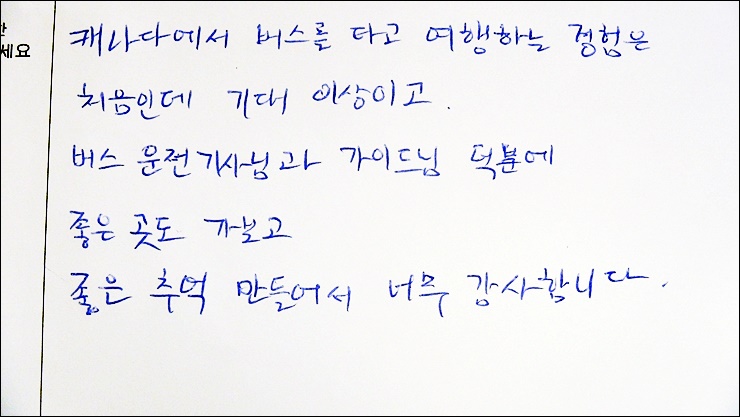 세요
캐나다에서 버스를 타고 여행하는 경험은
처음인데 기대 이상이고.
버스 운전기사님과 가이드님 덕분에
좋은 곳도 가보고
좋은 추억 만들어서 너무 감사합니다.